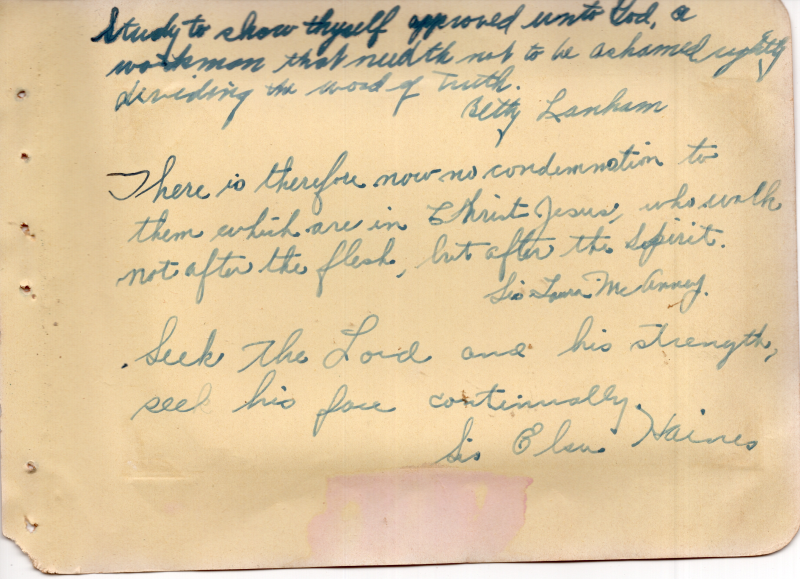 Study to show thyself approved unto God, a
workman that needth not to be ashamed rightly
dividing the word of Truth.
Betty Lanham
There is therefore now no condemnation to
them which are in Christ Jesus, who walk
not after the flesh, but after the Spirit.
Sis Laura McAnney.
Seek the Lord and his strength,
seek his face continually.
Sis Elsie Haines